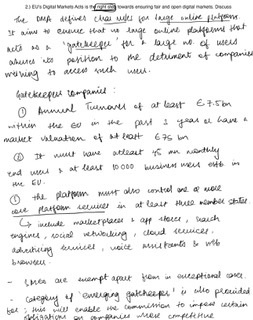 2.) EU's Digital Markets Acts is the right step towards ensuring fair and open digital markets. Discuss
The DMA defines clear rules for large online platforms.
It aims to ensure that no large online platforms that
acts as a 'gatekeeper' for a large no. of users
abuses its position to the detriment of companies
wishing to access such users.
Gatekeepers companies :
① Annual Turnover of at least € 7.5 bn
within the EU in the past 3 years or have a
market valuation of at least €75 bn
② It must have atleast 45 mn monthly
end users & at least 10000 business users estb. in
the EU.
③ The platform must also control one or more
core platform services in at least three member states
↳ include marketplaces & app stores, search
engines, social networking, cloud services,
advertising services, voice assistants & web
browsers.
- SMEs are exempt apart from in exceptional cases.
- Category of 'emerging gatekeeper' is also provided
for ; this will enable the commission to impose certain
obligations on companies whose competitive